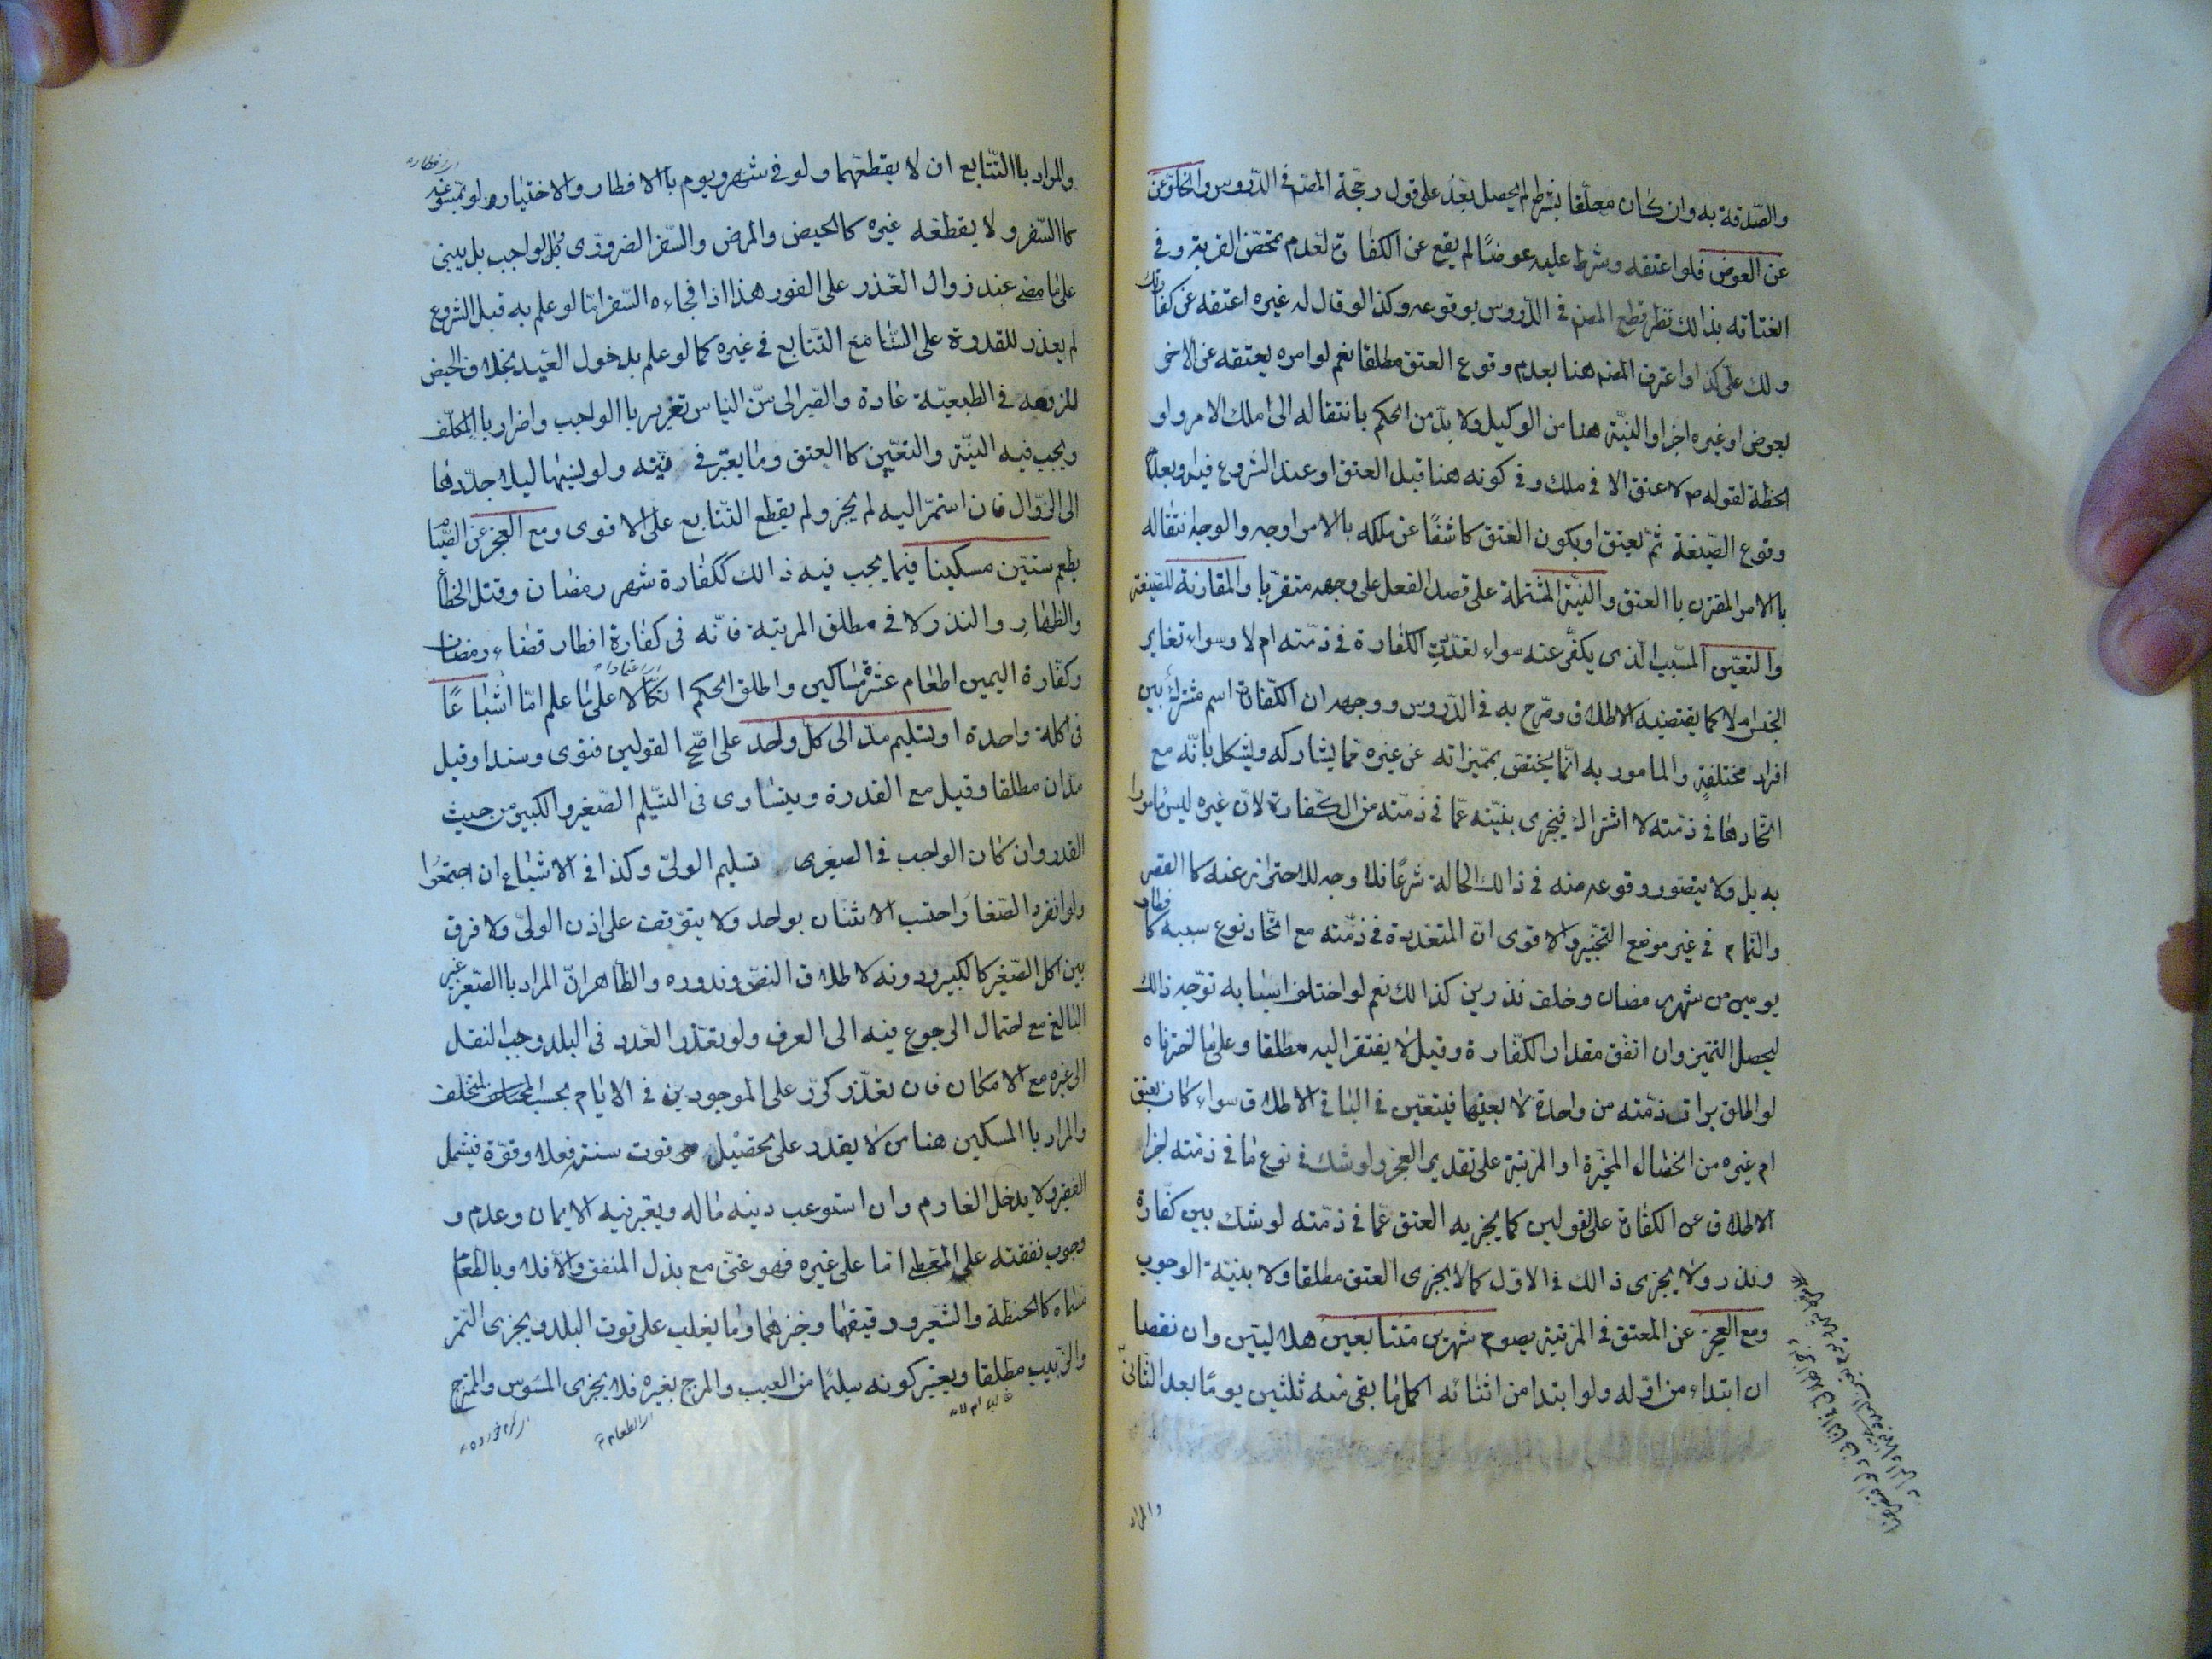 والصّدقة به وان كان معلّقا بشرط لم يحصل بعد على قول رجّحه المصّ في الدّروس والخلوّ عن
عن العوض فلو اعتقه وشرط عليه عوضًا لم يقع عن الكفارة لعدم تمحّض القربة وفي
انعتاقه بذالك نظر قطع المصّ في الدّروس بوقوعه وكذا لو قال له غيره اعتقه عن كفارتك
ولك على كذا واعترف المصّ هنا بعدم وقوع العتق مطلقا نعم لو امره بعتقه عن الآخر
بعوض او غيره اجزا والنيّة هنا من الوكيل ولا بدّ من الحكم بانتقاله الى ملك الامر ولو
لحظة لقوله ص لا عتق الا في ملك وفي كونه هنا قبل العتق او عند الشروع فيه او بعد
وقوع الصّيغة ثمّ يعتق او بكون العتق كاشفًا عن ملكه بالامر اوجه والوجه انتقاله
باالامر المقترن باالعتق والنيّة المشتملة على قصد الفعل على وجهه متقرّبا والمقارنة للصّيغة
والتعيّن المسّبب الّذى يكفّر عنه سواء تعدّدت الكفارة في ذمّته ام لا وسواء تغاير
الجنس ام لا كما يقتضيه الاطلاق وصّرح به في الدّروس ووجهه ان الكفّارة اسم مشترك بين
افراد مختلفةٍ والمامور به انّما يختصّ بمميّزاته عن غيره ممّا يشاركه ويشكل بانّه مع
اتّحادها في ذمّته لا اشتراك فيجزى بنيّته عمّا في ذمّته من الكّفارة لانّ غيره ليس مامورا
به بل ولا يتصّور وقوعه منه في ذالك الحالة شرعًا فلا وجه للاحتراز عنه كا القصر
والتّمام في غير موضع التخيّير والاقوى انّ المتعددة في ذمّته مع اتّحاد نوع سببه كا فطار
يومين من شهر رمضان وخلف نذرين كذالك نعم لو اختلف اسبابه توّجه ذالك
ليحصل التمّيز وان اتفق مقدار الكفّارة وقيل لا يفتقر اليه مطلقا وعلى ما اخترناه
لو اطلق برات ذمّته من واحدة لا بعينها فيتعيّن في الباقي الاطلاق سواء كان بعتق
ام غيره من الخصال المخيّرة او المرتبة على تقدير العجز ولو شك في نوع ما في ذمّته اجزا
الاطلاق عن الكفّارة على القولين كما يجزيه العتق عمّا في ذمّته لو شك بين كفّارة
ونذر ولا يجزى ذالك في الاوّل كما لا يجزى العتق مطلقا ولا بنيّة الوجوب
ومع العجز عن العتق في المرتبة يصوم شهرين متتابعين هلاليّين وان نقصا
ان ابتداء من اوّله ولو ابتدا من اثنائه اكمل ما بقى منه ثلثين يومًا بعد الثّانى
والمراد
والمراد باالتّتابع ان لا يقطعهما ولو في شهر ويوم باالافطار والاختيار ولو بمسوّغه
اى افطاره
كا السّفر ولا يقطعه غيره كا الحيض والمرض والسّفر الضرورّى والواجب بل يبنى
على ما مضى عند زوال العّذر على الفور هذا اذا فجاءه السّفر امّا لو علم به قبل الشروع
لم يعذر للقدرة على التّتابع في غيره كما لو علم بدخول العّيد بخلاف الحيض
للزومه في الطبيعيّة عادة والصّبر الى سّن الياس تغرير باالواجب واضرار باالمكلّف
ويجب فيه النيّة والتعّيين كا العتق وما يعتبر في نيّته ولو نسيها ليلا جدّدها
الى الزّوال فان استمرّ اليه لم يجز ولم يقطع التّتابع على الاقوى ومع العجز عن الصّيام
يطعم ستيّن مسكينا فيما يجب فيه ذالك ككفارة شهر رمضان وقتل الخطأ
والظهار والنذر لا في مطلق المرتبة فانّه في كفارة افطار قضاء رمضان
وكفّارة اليمين اطعام عشرة مساكين واطلق الحكم اتكالا على ما علم امّا اشباعًا
اى اعتمادا
في اكلة واحدة او تسليم مدّ الى كلّ واحد على اصّح القولين فتوى وسندا وقيل
مدّان مطلقا وقيل مع القدرة ويتساوى في التسّليم الصّغير والكبير من حيث
القدر وان كان الواجب في الصغير تسليم الولىّ وكذا في الاشباع ان اجتمعوا
ولو انفرد الصّغار احتسب الاثنان بواحد ولا يتوّقف على اذن الولىّ ولا فرق
بين اكل الصّغير كا الكبير ودونه لاطلاق النصّ وندوره والظاهر انّ المراد باالصّغير غير
البالغ مع احتمال الرجوع فيه الى العرف ولو تعذّر العّدد في البلد وجب النقل
الى غيره مع الامكان فان تعذّر كرّر على الموجودين في الايّام بحسب المتخلّف
والمراد باالمسكين هنا من لا يقدر على تحصيل قوت سنته فعلا وقوّة فيشمل
الفقير ولا يدخل الغارم وان استوعب دينه ماله ويعتبر فيه الايمان وعدم و
وجوب نفقته على المعّطى امّا على غيره فهو غنىّ مع بذل المنفق والاّ فلا وبا لطّعام
مسّماه كا الحنطة والشّعير ودقيقهما وخبزهما وما يغلب على قوت البلد ويجزى التّمر
والزّبيب مطلقا ويعتبر كونه سليمًا من العيب والمزج بغيره فلا يجزى المسّوس والممتزج
غالبا ام لا
اى الطعام